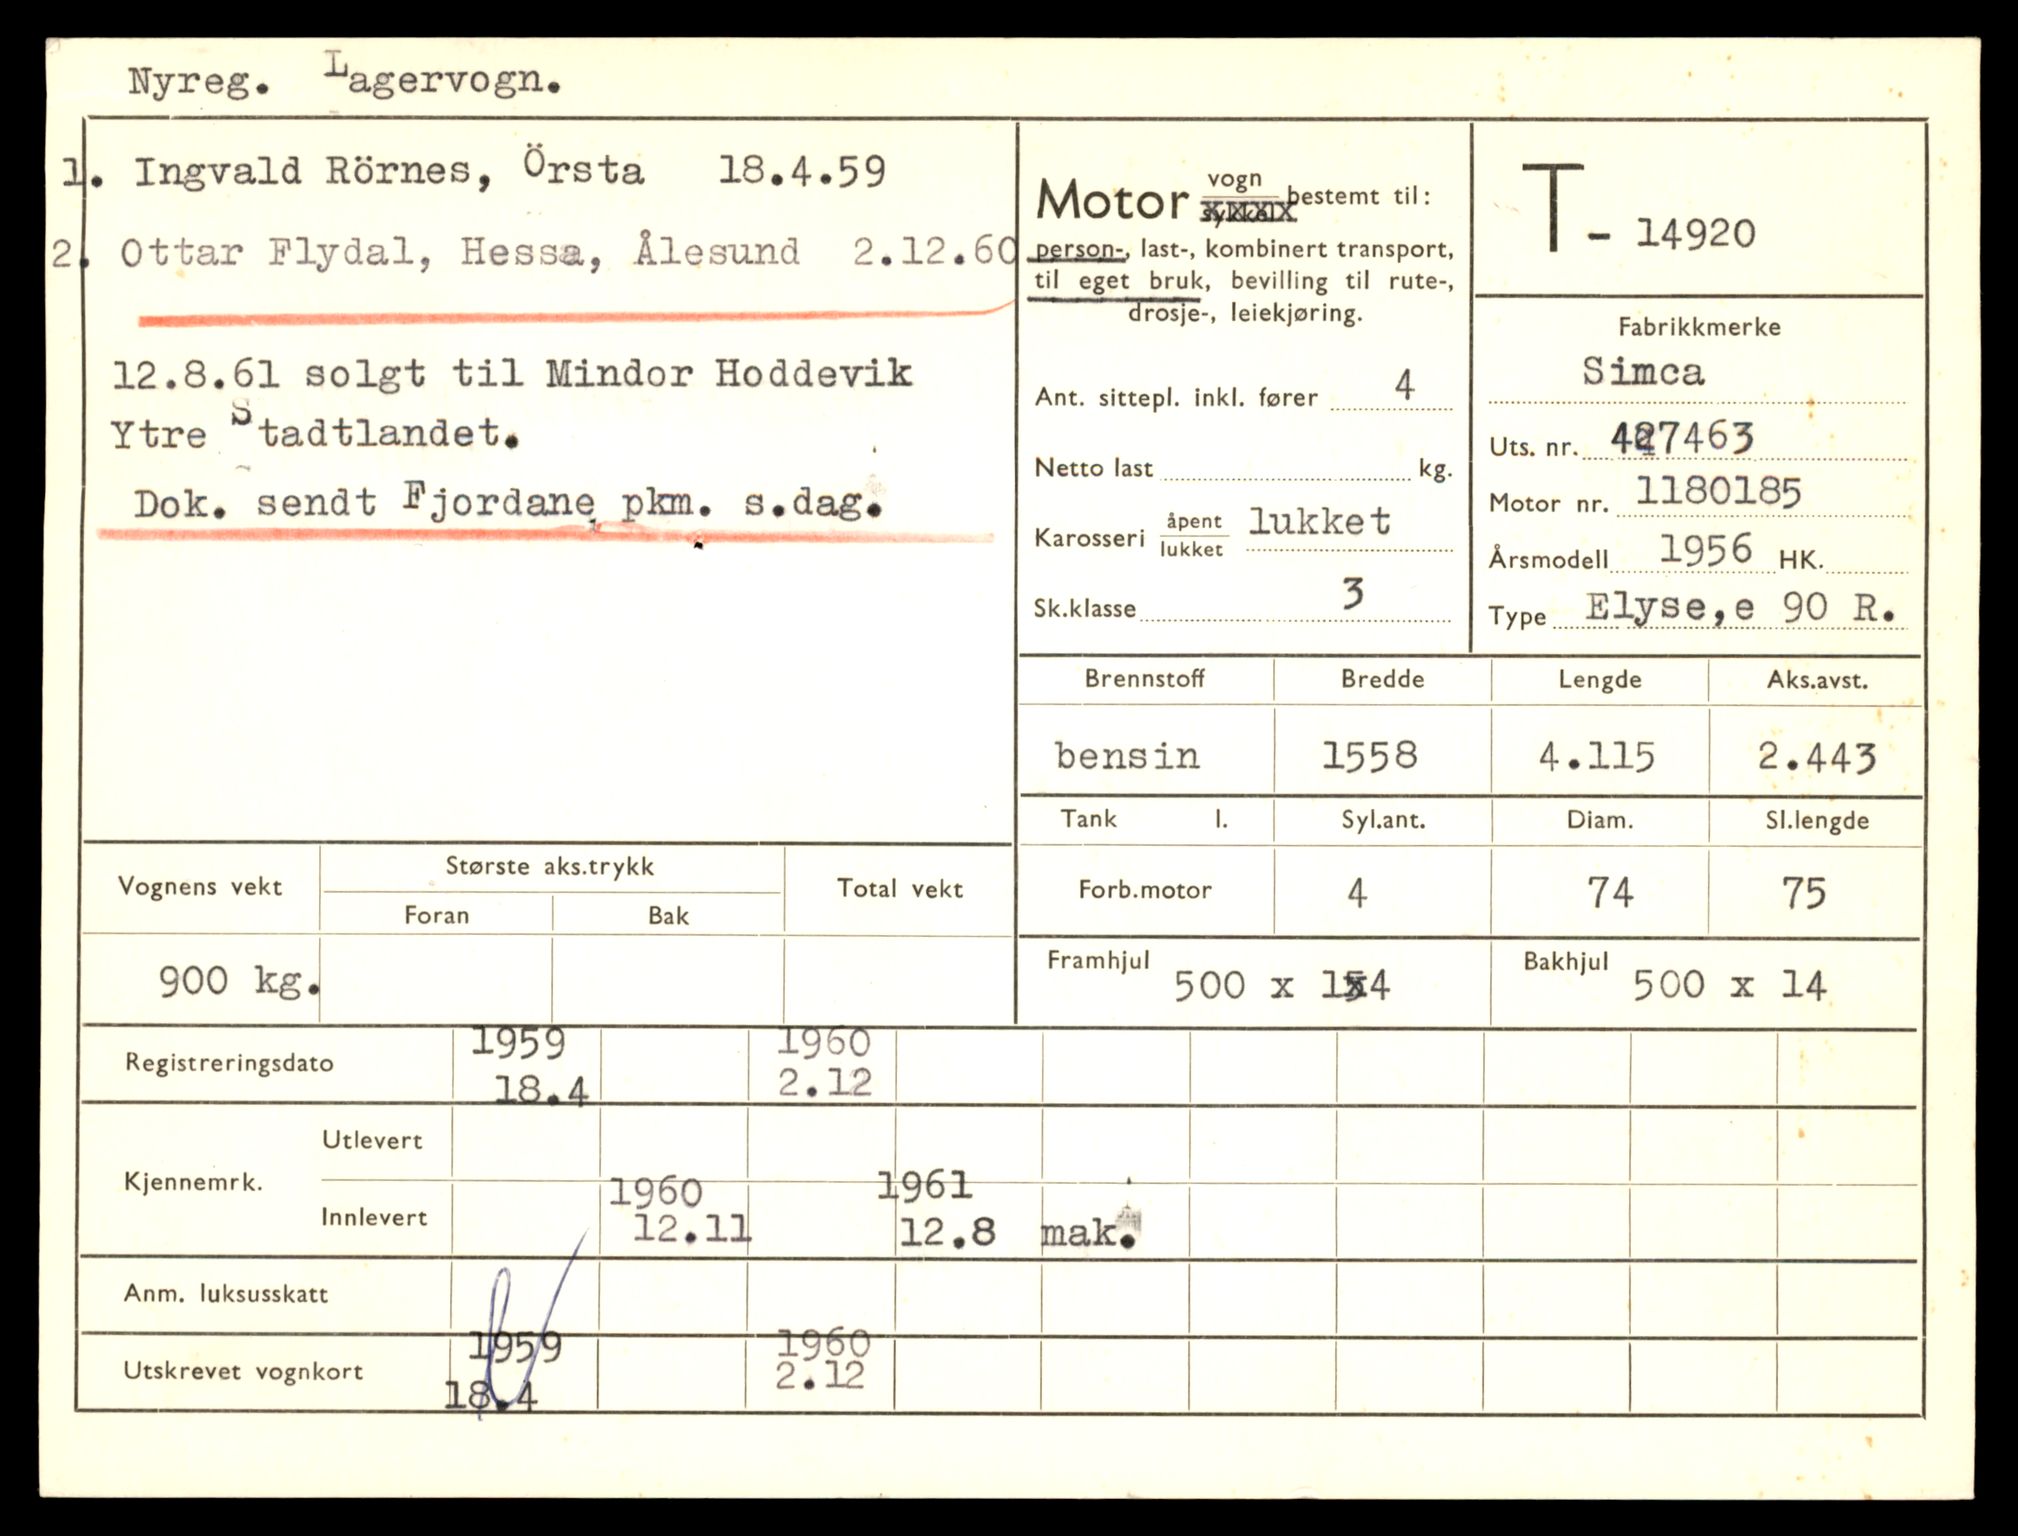 Nyreg. Lagervogn.
1. Ingvald Rörnes, Örsta 18.4.59
2. Ottar Flydal, Hessa, Ålesund 2.12.60
12.8.61 solgt til Mindor Hoddevik
Ytre Stadtlandet.
Dok. sendt Fjordane pkm. s.dag.
Motor vogn bestemt til:
person-, last-, kombinert transport,
til eget bruk, bevilling til rute-,
drosje-, leiekjøring.
Ant. sittepl. inkl. fører 4
Netto last kg.
Karosseri åpent lukket lukket
Sk.klasse 3
T - 14920
Fabrikkmerke
Simca
Uts. nr.
Motor nr. 1180185
Årsmodell 1956 HK.
Type Elyse,e 90 R.
Brennstoff Bredde Lengde Aks.avst.
bensin 1558 4.115 2.443
Tank l. Syl.ant. Diam. Sl.lengde
Forb.motor 4 74 75
Framhjul 500 x 14 Bakhjul 500 x 14
Vognens vekt Største aks.trykk Total vekt
Foran Bak
900 kg.
1959 1960
Registreringsdato
18.4 2.12
Utlevert
Kjennemrk.
1960 1961
Innlevert
12.11 12.8 mak.
Anm. luksusskatt
1959 1960
Utskrevet vognkort
18.4 2.12